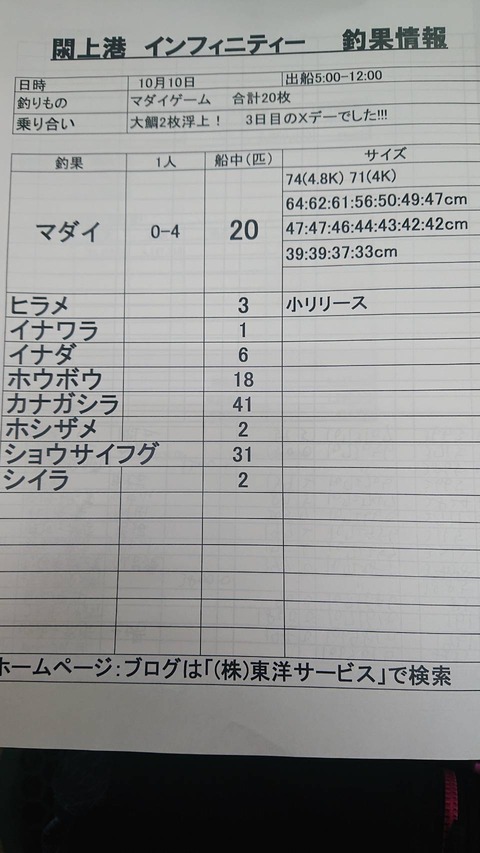 閖上港 インフィニティー 釣果情報
日時 10月10日 出船5:00-12:00
釣りもの マダイゲーム 合計20枚
乗り合い 大鯛2枚浮上! 3日目のXデーでした!!!
釣果 1人 船中(匹) サイズ
74(4.8K) 71(4K)
64:62:61:56:50:49:47cm
マダイ 0-4 20 47:47:46:44:43:42:42cm
39:39:37:33cm
ヒラメ 3 小リリース
イナワラ 1
イナダ 6
ホウボウ 18
カナガシラ 41
ホシザメ 2
ショウサイフグ 31
シイラ 2
ホームページ:ブログは「(株)東洋サービス」で検索